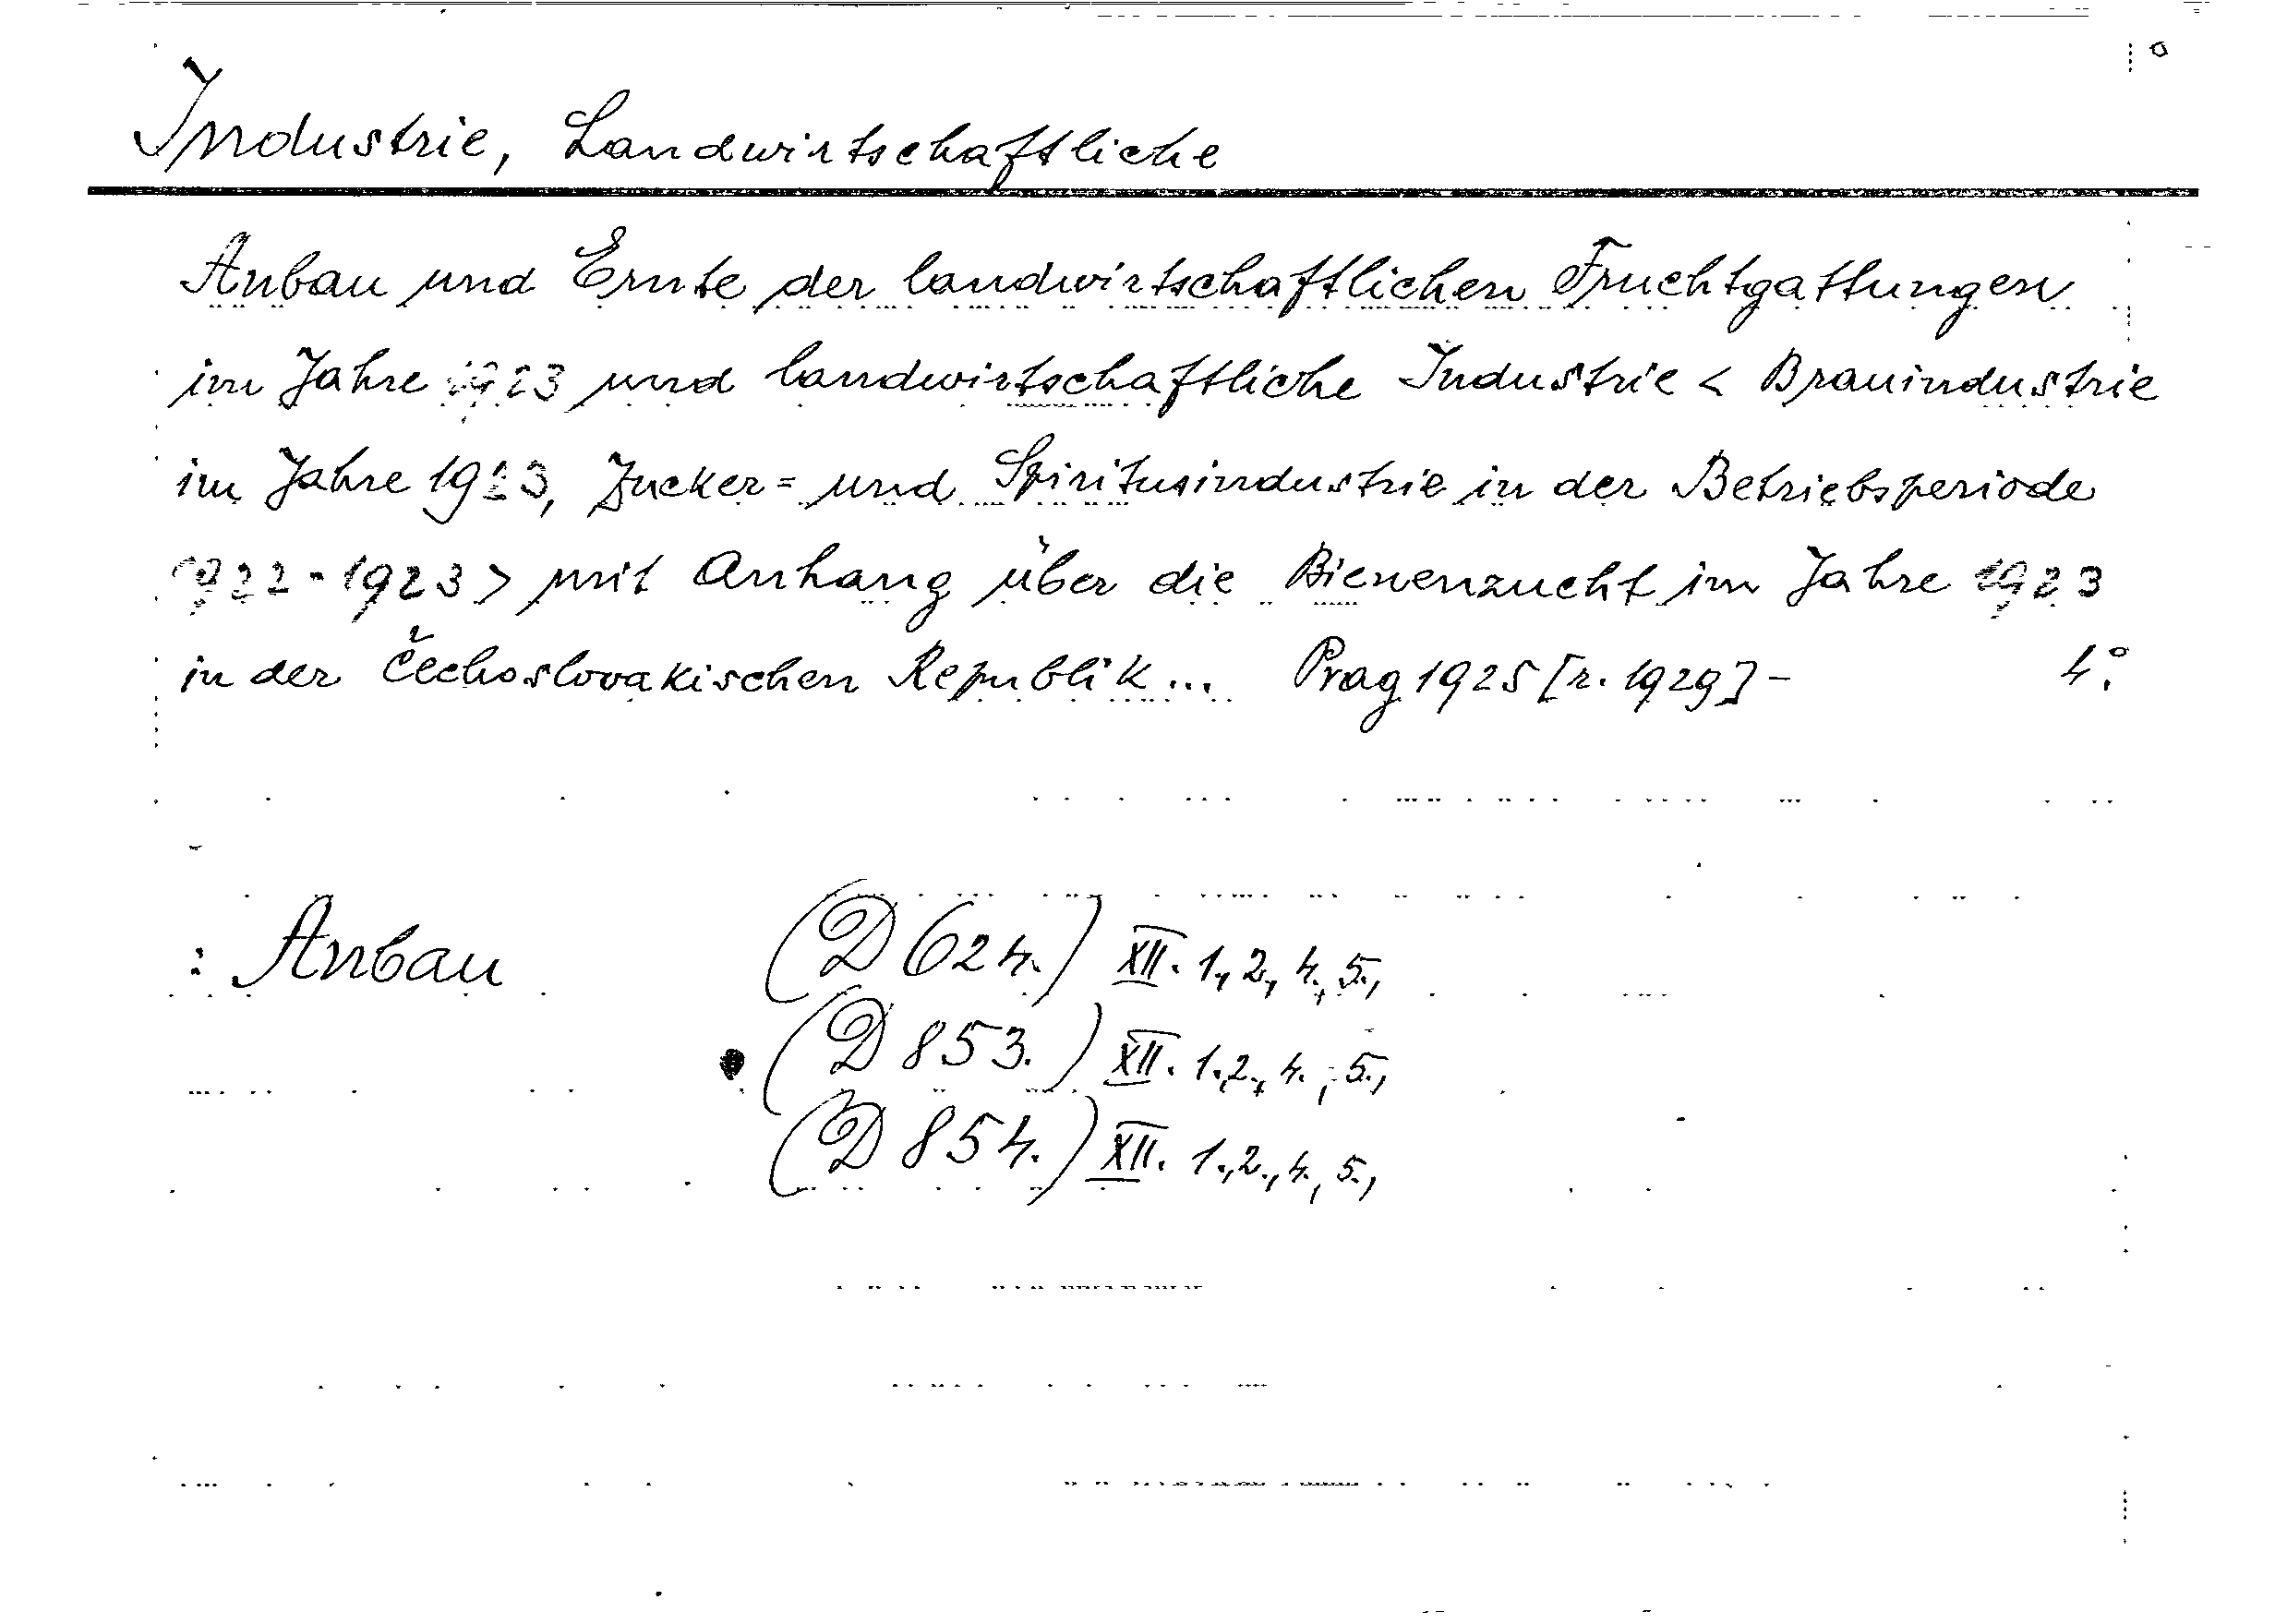 Industrie, Landwirtschaftliche
Anbau und Ernte der landwirtschaftlichen Fruchtgattungen
im Jahre 1923 und landwirtschaftliche Industrie < Brauindustrie
im Jahre 1923, Zucker= und Spiritusindustrie in der Betriebsperiode
1922-1923> mit Anhang über die Bienenzucht im Jahre 1923
in der Čechoslovakischen Republik... Prag 1925 [r. 1929] - 4.°
: Anbau (D 624.) XII. 1., 2., 4., 5.,
(D 853.) XII. 1., 2., 4., 5.,
(D 854.) XII. 1., 2., 4., 5.,